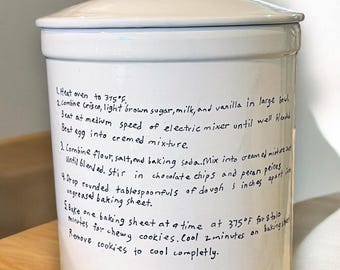 1. Heat oven to 375°F.
2. Combine Crisco, light brown sugar, milk, and vanilla in large bowl.
Beat at medium speed of electric mixer until well blended.
Beat egg into cremed mixture.
3. Combine flour, salt, and baking soda. Mix into creamed mixture
until blended. Stir in chocolate chips and pecan peices
4. Drop rounded tablespoonfuls of dough 3 inches apart
ungreased baking sheet.
5. Bake one baking sheet at a time at 375°F for 8 to
minutes for chewy cookies. Cool 2 minutes on baking
Remove cookies to cool completly.